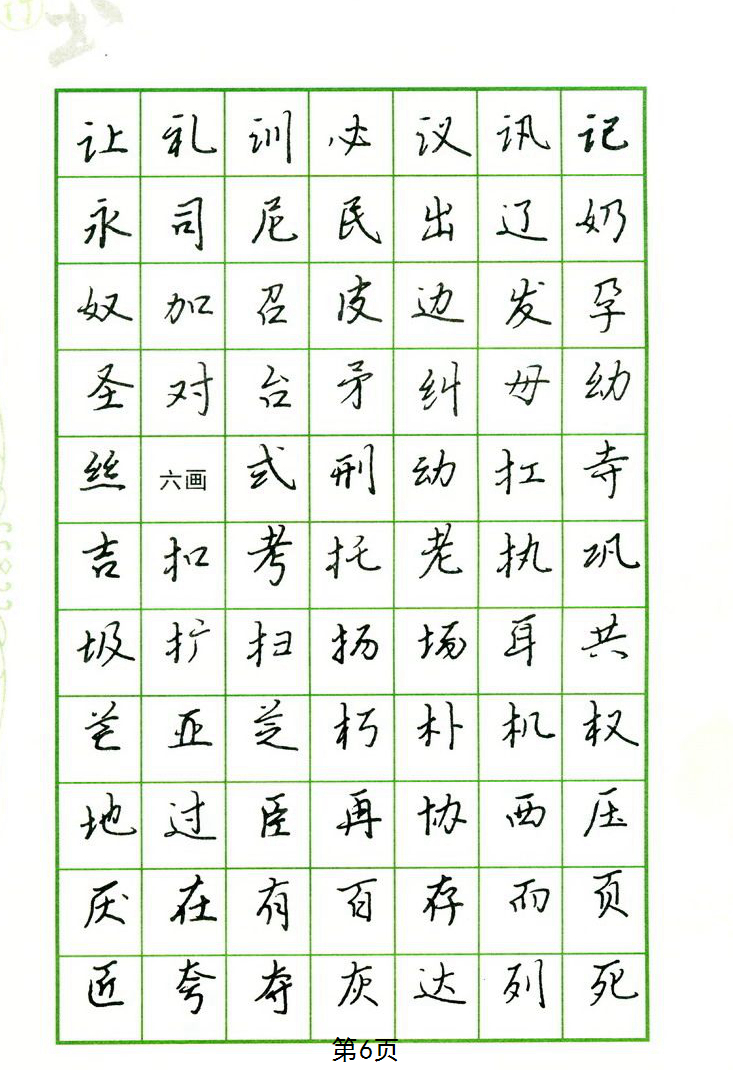 让 礼 训 必 议 讯 记
永 司 尼 民 出 辽 奶
奴 加 召 皮 边 发 孕
圣 对 台 矛 纠 母 幼
丝 六画 式 刑 动 扛 寺
吉 扣 考 托 老 执 巩
圾 扩 扫 扬 场 耳 共
芒 亚 芝 朽 朴 机 权
地 过 臣 再 协 西 压
厌 在 有 百 存 而 页
匠 夸 夺 灰 达 列 死
第6页